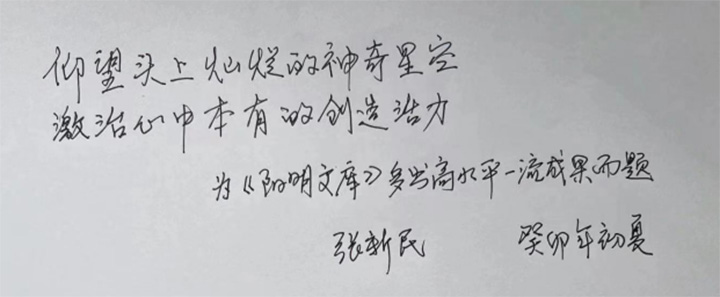 仰望头上灿烂的神奇星空
激活心中本有的创造活力
为《阳明文库》多出高水平一流成果而题
张新民 癸卯年初夏